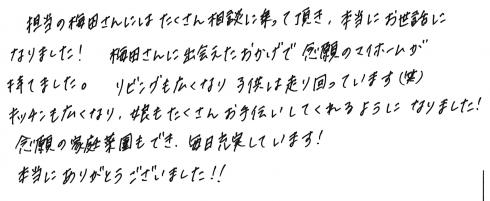 担当の梅田さんにはたくさん相談に乗って頂き、本当にお世話に
なりました! 梅田さんに出会えたおかげで念願のマイホームが
持てました。 リビングも広くなり子供は走り回っています(笑)
キッチンも広くなり、娘もたくさんお手伝いしてくれるようになりました!
念願の家庭菜園もでき、毎日充実しています!
本当にありがとうございました!!